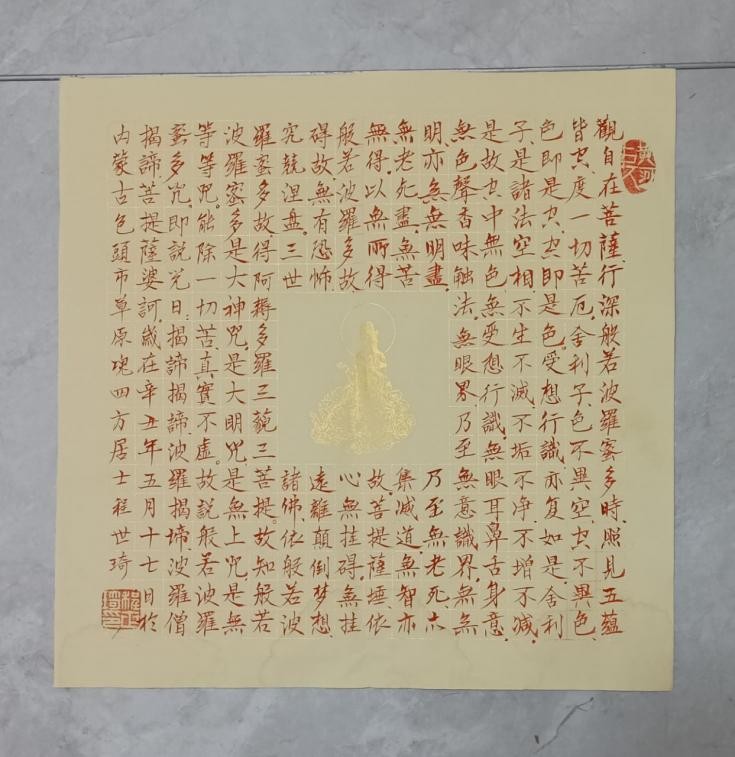 觀自在菩薩行深般若波羅蜜多時照見五蘊
皆空度一切苦厄舍利子色不異空空不異色
色即是空空即是色受想行識亦复如是舍利
子是諸法空相不生不滅不垢不净不增不減
是故空中無色無受想行識無眼耳鼻舌身意
無色聲香味触法無眼界乃至無意識界無無
明亦無無明盡乃至無老死亦
無老死盡無苦集滅道無智亦
無得以無所得故菩提薩埵依
般若波羅多故心無挂碍無挂
碍故無有恐怖遠離顛倒梦想
究竟涅盘三世諸佛依般若波
羅蜜多故得阿耨多羅三藐三菩提故知般若
波羅密多是大神咒是大明咒是無上咒是無
等等咒能除一切苦真實不虚故説般若波羅
蜜多咒即說咒曰揭諦揭諦波羅揭諦波羅僧
揭諦菩提薩婆訶歲在辛丑年五月十七日於
内蒙古包頭市草原瑰四方居士程世琦